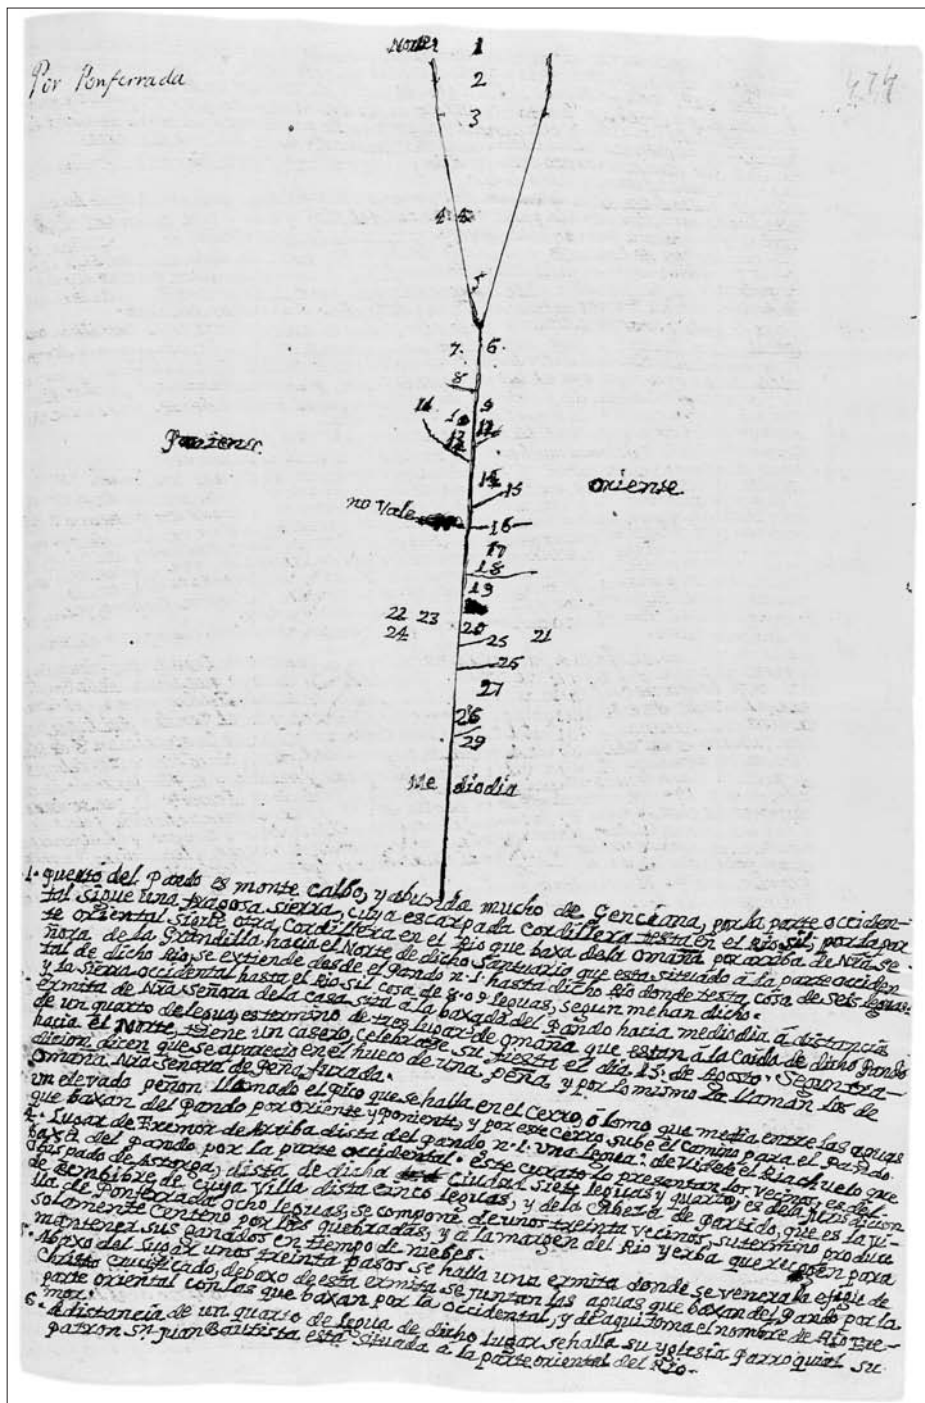 Por Ponferrada
474
Norte 1
2
3
4. 4.
5
7. 6.
8
9
11 10
13 12
Poniente
14
15
oriente
no Vale
16
17
18
19
22 23
20
24
25
21
26
27
28
29
Mediodia
1. puerto del Pando es monte Calbo, y abunda mucho de Genciana, por la parte occiden-
tal sigue una fragosa sierra, cuya escarpada cordillera testa en el Rio Sil, por la par
te oriental sigue otra Cordillera en el Rio que baxa dela Omaña por arriba de Nra. Se-
ñora de la Grandilla hacia el Norte de dicho Santuario que esta situado â la parte occiden
tal de dicho Rio, se extiende desde el Pando n. 1. hasta dicho Rio donde testa cosa de seis leguas:
y la Sierra occidental hasta el Rio Sil cosa de 8. o 9 leguas, segun me han dicho.
Ermita de Nra. Señora dela Casa sita â la baxada del Pando hacia mediodia â distancia
de un quarto de legua, es termino de tres lugares de Omaña que estan â la Caida de dicho Pando
hacia el Norte, tiene un casero, celebrase su fiesta el dia 15. de Agosto. Segun tra-
dicion dicen que se aparecio en el hueco de una peña, y por lo mismo la llaman los de
Omaña Nra. Senora de Peña furada.
un elevado peñon llamado el pico que se halla en el cerro, ô lomo que media entre las aguas
que baxan del Pando por oriente y poniente, y por este cerro sube el camino para el Pando.
4. Lugar de Eremor de Arriba dista del Pando n. 1. una legua: de Videle el Riachuelo que
baxa del Pando por la parte occidental. este curato lo presentan los vecinos, es del
Obispado de Astorga, dista de dicha Ciudad siete leguas y quarto, es dela jurisdicion
de Bembibre de cuya Villa dista cinco leguas, y dela Cabeza de Partido, que es la vi-
lla de Ponferrada ocho leguas, se compone de unos treinta vecinos, su termino produce
solamente Centeno por las quebradas, y a la margen del Rio yerba que recogen para
mantener sus ganados en tiempo de niebes.
5. Abaxo del Lugar unos treinta pasos se halla una ermita donde se venera la efigie de
Christo crucificado, debaxo de esta ermita se juntan las aguas que baxan del Pando por la
parte oriental con las que baxan por la occidental, y de aqui toma el nombre de Rio Ere-
mor.
6. A distancia de un quarto de legua de dicho lugar se halla su yglesia Parroquial su
patron Sn. Juan Bautista esta situada â la parte oriental del Rio.